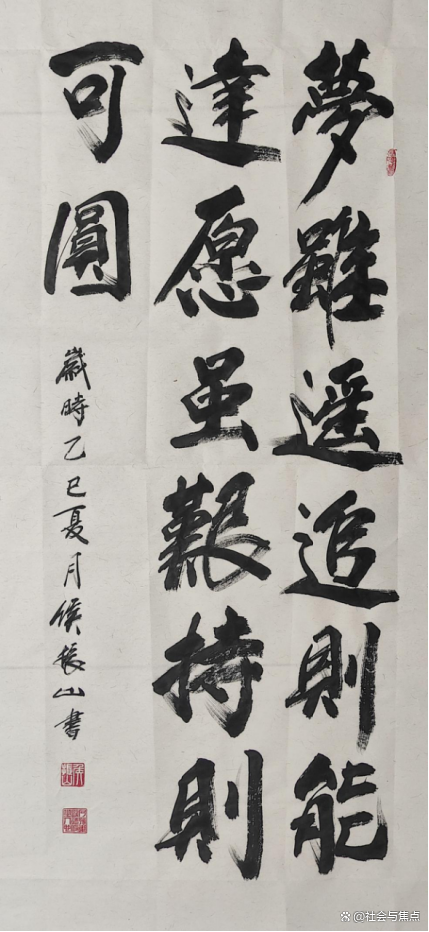 夢雖遥追則能
達愿虽艱持則
可圓
歲時乙巳夏月侯振山書
@社会与焦点